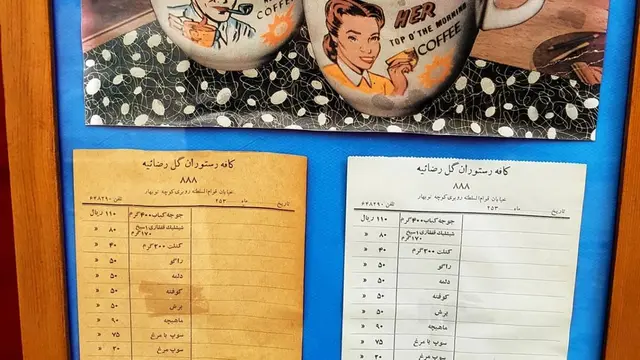 COFFEE
HER
TOP O' THE MORNING
COFFEE
کافه رستوران گل رضائیه
۸۸۸
خیابان قوام السلطنه روبروی کوچه نوبهار
تاریخ ماه ۲۵۳ تلفن ۶۳۸۲۹۰
جوجه کباب ۴۰۰ گرم ۱۱۰ ریال
شیشلیک قفقازی ۱ سیخ ۱۷۰ گرم ۸۰ «
کتلت ۲۰۰ گرم ۴۰ «
راگو ۵۰ «
دلمه ۵۰ «
کوفته ۵۰ «
برش ۵۰ «
ماهیچه ۹۰ «
سوپ با مرغ ۷۵ «
سوپ بی مرغ ۲۰ «
کافه رستوران گل رضائیه
۸۸۸
خیابان قوام السلطنه روبروی کوچه نوبهار
تاریخ ماه ۲۵۳ تلفن ۶۳۸۲۹۰
جوجه کباب ۴۰۰ گرم ۱۱۰ ریال
شیشلیک قفقازی ۱ سیخ ۱۷۰ گرم ۸۰ «
کتلت ۲۰۰ گرم ۴۰ «
راگو ۵۰ «
دلمه ۵۰ «
کوفته ۵۰ «
برش ۵۰ «
ماهیچه ۹۰ «
سوپ با مرغ ۷۵ «
سوپ بی مرغ ۲۰ «